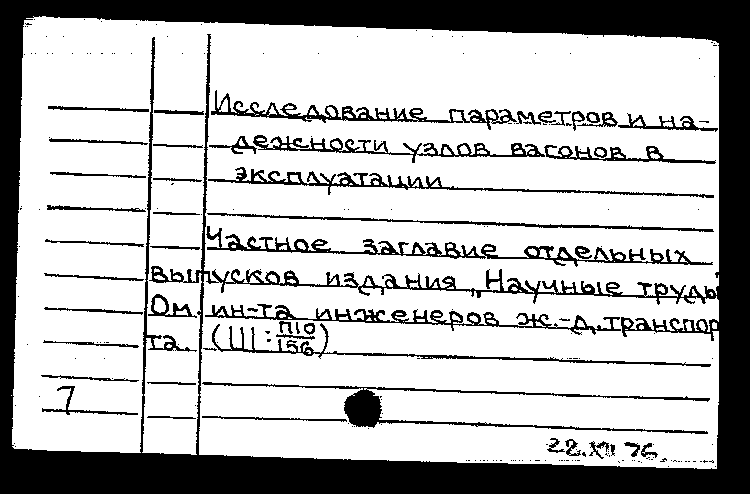 Исследование параметров и на-
дежности узлов вагонов в
эксплуатации.
Частное заглавие отдельных
выпусков издания „Научные труды
Ом. ин-та инженеров ж.-д. транспор
та. (III: П10/156).
7
28.XII 76.